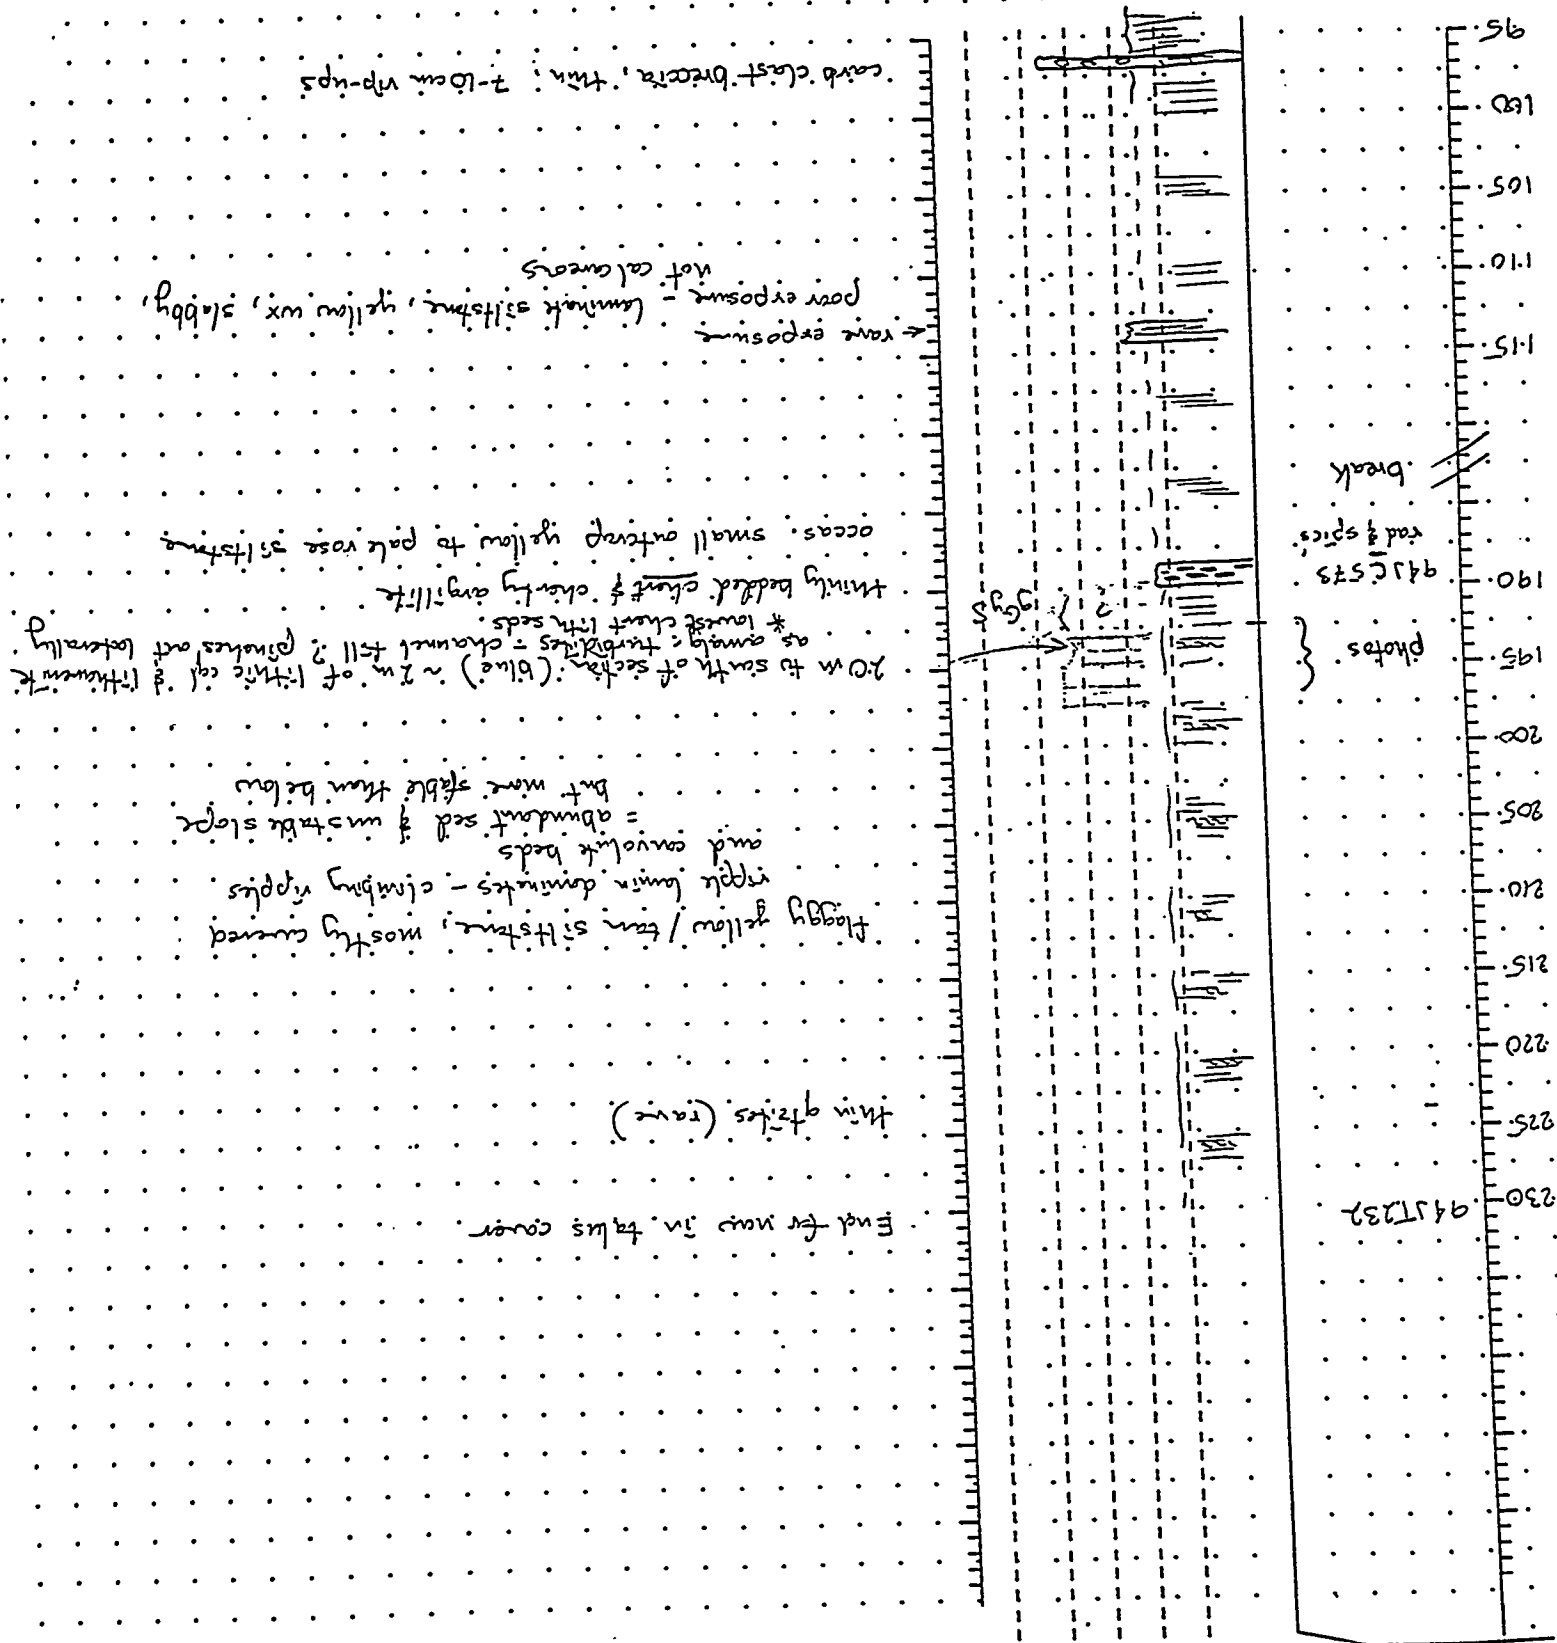 230
94JT232
End for now in talus cover
225
thin qtzites (rare)
220
215
flaggy yellow / tan siltstone, mostly covered
ripple lamin dominates - climbing ripples
and convolute beds
= abundant sed & unstable slope
but more stable than below
210
205
200
195
photos
20m to south of section (blue) ~ 2m of lithic cgl & litharenite
as amalg. turbidites - channel fill? pinches out laterally
* lowest chert lith seds.
gGyS
?
190
94JC573
rad & spics
thinly bedded chert & cherty argillite
occas. small outcrop yellow to pale rose siltstone
break
115
← rare exposure
poor exposure - laminate siltstone, yellow wx, slabby,
not calcareous
110
105
100
carb clast breccia, thin; 7-10cm rip-ups
95